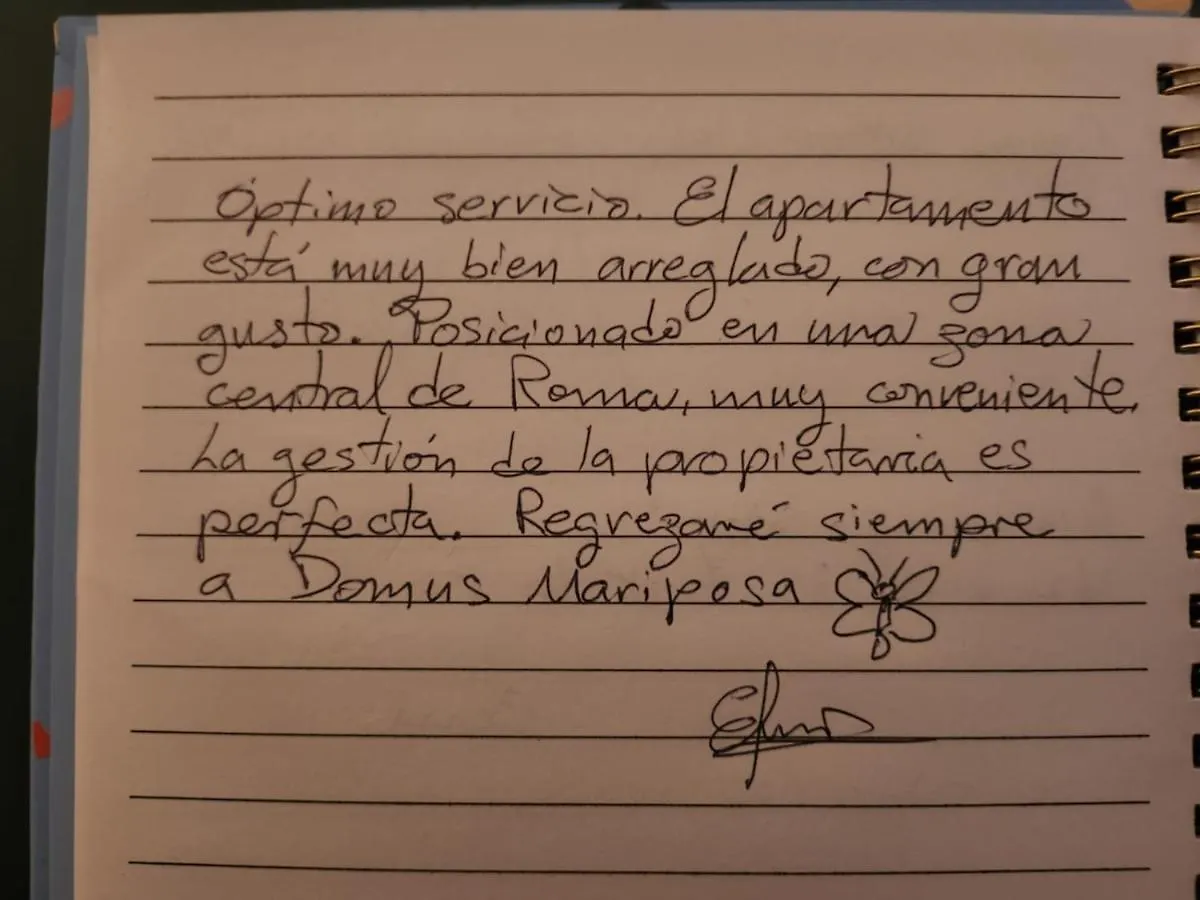 Óptimo servicio. El apartamento
está muy bien arreglado, con gran
gusto. Posicionado en una zona
central de Roma, muy conveniente.
La gestión de la propietaria es
perfecta. Regrezaré siempre
a Domus Mariposa